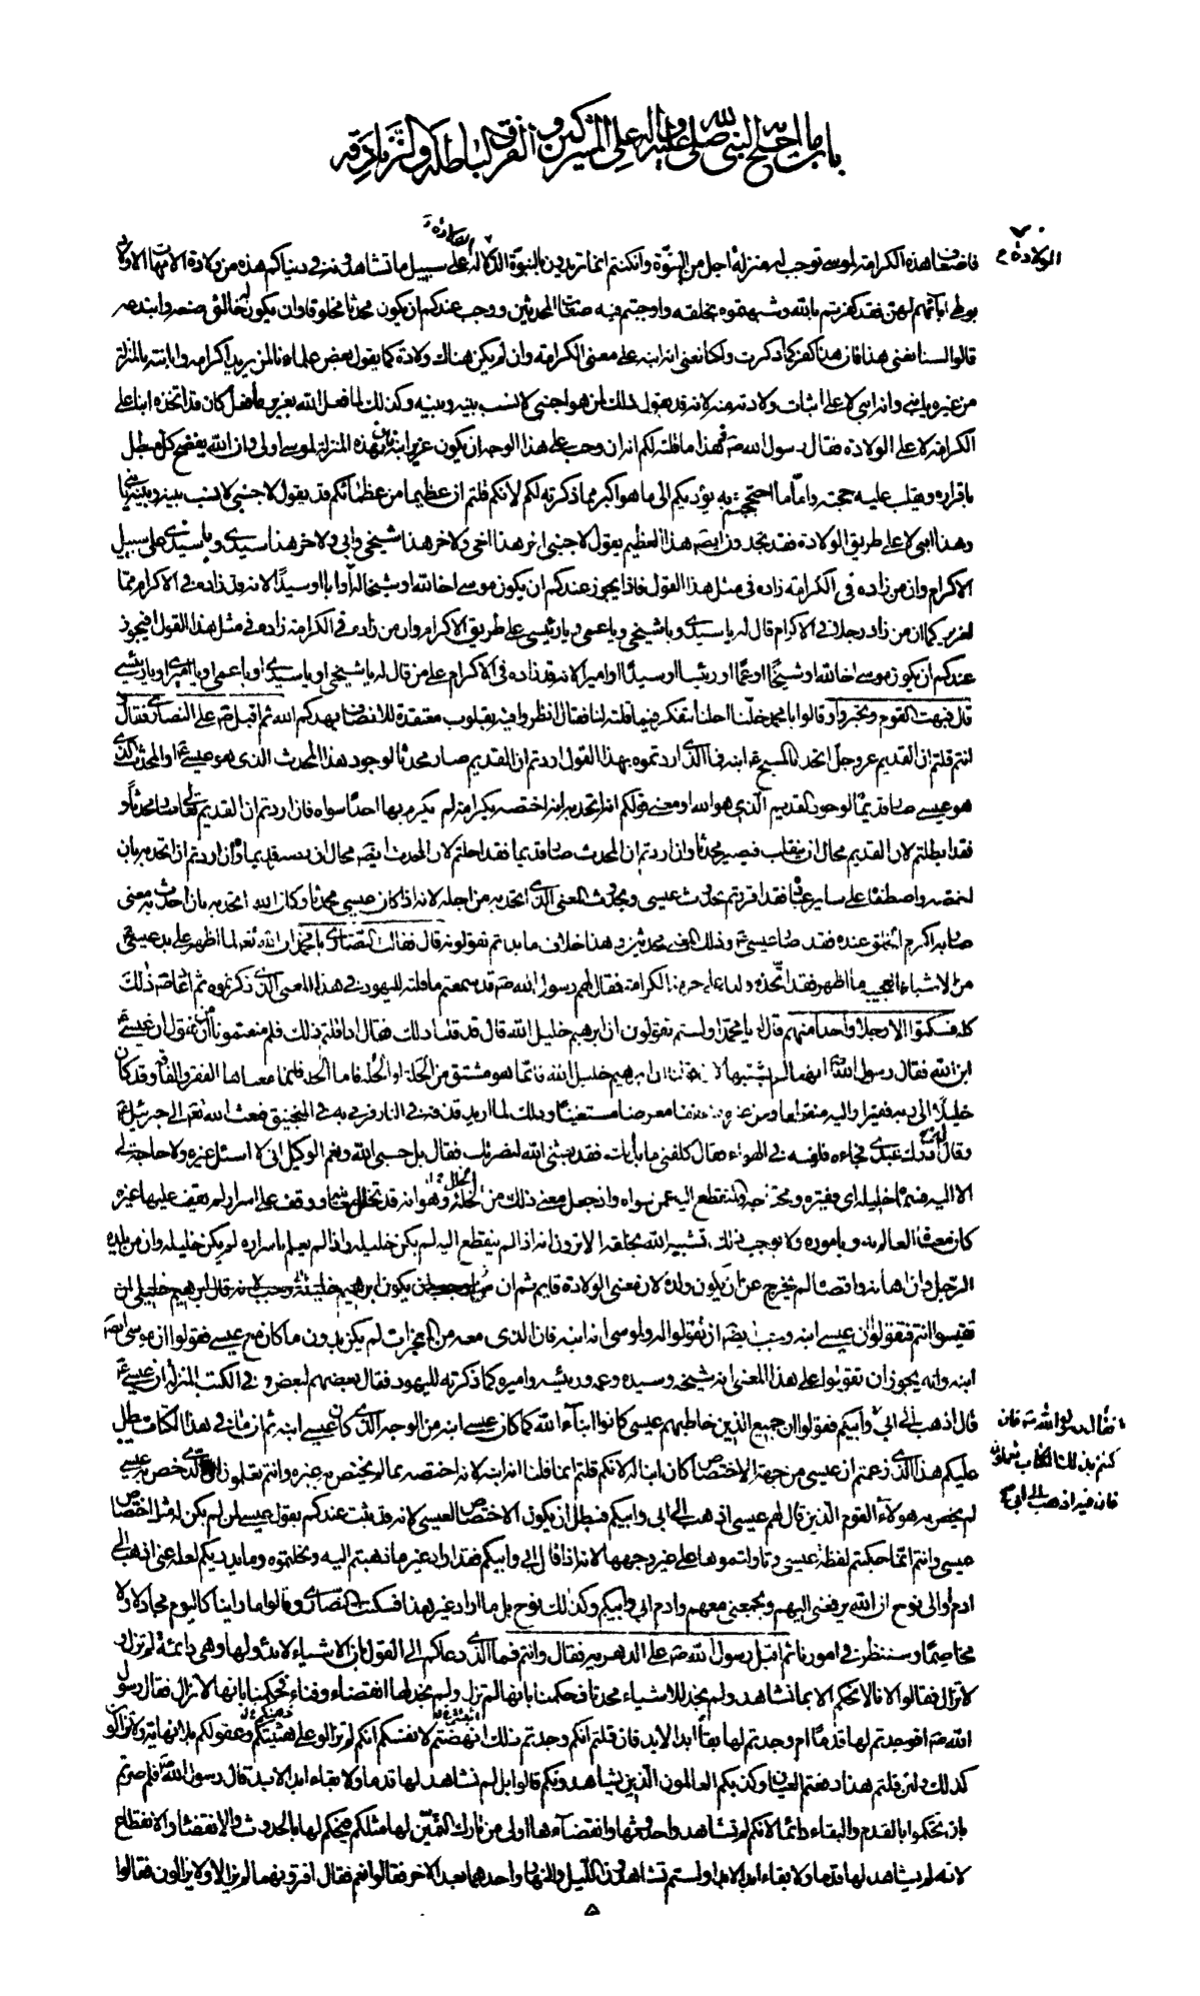 باب ما احتج النبی صلی الله علیه واله علی المشرکین و الفرق الباطلة والزنادقة
فاضعاف هذه الکرامة لموسی توجب له منزلة اجل من البنوة وانکنتم انما تریدون بالبنوة الدلالة علی سبیل ما تشاهدونه فی دنیاکم هذه من ولادة الامهات الاولاد
الولادة
بوطی ابائهم لهن فقد کفرتم بالله وشبهتموه بخلقه واوجبتم فیه صفات المحدثین ووجب عندکم ان یکون محدثا مخلوقا وان یکون له خالق صنعه وابتدعه
قالوا لسنا نعنی هذا فان هذا کفر کما ذکرت ولکنا نعنی انه ابنه علی معنی الکرامة وان لم یکن هناک ولادة کما یقول بعض علمائنا لمن یرید اکرامه وابانته بالمنزلة
من غیره یا بنی وانه ابنی لا علی اثبات ولادته منه لانه قد یقول ذلک لمن هو اجنبی لا نسب بینه وبینه وکذلک لما فعل الله بعزیر ما فعل کان قد اتخذه ابنا علی
الکرامة لا علی الولادة فقال رسول الله ص فهذا ما قلته لکم انه ان وجب علی هذا الوجه ان یکون عزیر ابنه فان هذه المنزلة لموسی اولی وان الله یفضح کل مبطل
باقراره ویقلب علیه حجته واما ما احتججتم به یؤدیکم الی ما هو اکبر مما ذکرته لکم لانکم قلتم ان عظیما من عظمائکم قد یقول لاجنبی لا نسب بینه وبینه یا بنی
وهذا ابنی لا علی طریق الولادة فقد تجدون ایضا هذا العظیم یقول لاجنبی اخر هذا اخی ولاخر هذا شیخی وابی ولاخر هذا سیدی ویا سیدی علی سبیل
الاکرام وان من زاده فی الکرامة زاده فی مثل هذا القول فاذا یجوز عندکم ان یکون موسی اخا لله او شیخا له او ابا او سیدا لانه قد زاده فی الاکرام مما
لعزیر کما ان من زاد رجلا فی الاکرام قال له یا سیدی ویا شیخی ویا عمی ویا رئیسی علی طریق الاکرام وان من زاده فی الکرامة زاده فی مثل هذا القول افیجوز
عندکم ان یکون موسی اخا لله او شیخا او عما او رئیسا او سیدا او امیرا لانه قد زاده فی الاکرام علی من قال له یا شیخی او یا سیدی او یا عمی او یا امیری او یا رئیسی
قال فبهت القوم وتحیروا وقالوا یا محمد اجلنا نتفکر فیما قلته لنا فقال انظروا فیه بقلوب معتقدة للانصاف یهدکم الله ثم اقبل ص علی النصاری فقال
انتم قلتم ان القدیم عز وجل اتحد بالمسیح ع ابنه فما الذی اردتموه بهذا القول اردتم ان القدیم صار محدثا لوجود هذا المحدث الذی هو عیسی ع او المحدث الذی
هو عیسی صار قدیما لوجود القدیم الذی هو الله او معنی قولکم انه اتحد به انه اختصه بکرامة لم یکرم بها احدا سواه فان اردتم ان القدیم تعالی صار محدثا
فقد ابطلتم لان القدیم محال ان ینقلب فیصیر محدثا وان اردتم ان المحدث صار قدیما فقد احلتم لان المحدث ایضا محال ان یصیر قدیما وان اردتم انه اتحد به بان
اختصه واصطفاه علی سایر عباده فقد اقررتم بحدوث عیسی وبحدوث المعنی الذی اتحد به من اجله لانه اذا کان عیسی محدثا وکان الله اتحد به بان احدث به معنی
صار به اکرم الخلق عنده فقد صار عیسی ع وذلک المعنی محدثین وهذا خلاف ما بداتم تقولونه قال فقالت النصاری یا محمد ان الله تعالی لما اظهر علی ید عیسی ع
من الاشیاء العجیبة ما اظهر فقد اتخذه ولدا علی جهة الکرامة فقال لهم رسول الله ص قد سمعتم ما قلته للیهود فی هذا المعنی الذی ذکرتموه ثم اعاد ص ذلک
کله فسکتوا الا رجلا واحدا منهم قال یا محمد اولستم تقولون ان ابرهیم خلیل الله قال قد قلنا ذلک فقال اذا قلتم ذلک فلم منعتمونا من ان نقول ان عیسی ع
ابن الله فقال رسول الله انهما لم یشتبها لان قولنا ان ابرهیم خلیل الله فانما هو مشتق من الخلة او الخلة فاما الخلة فانما معناها الفقر والفاقة وقد کان
خلیلا الی ربه فقیرا والیه منقطعا وعن غیره متعففا معرضا مستغنیا وذلک لما ارید قذفه فی النار فرمی به فی المنجنیق فبعث الله تعالی جبرئیل ع
وقال له ادرک عبدی فجاءه فلقیه فی الهواء فقال کلفنی ما بدا لک فقد بعثنی الله لنصرتک فقال بل حسبی الله ونعم الوکیل انی لا اسئل غیره ولا حاجة لی
الا الیه فسماه خلیله ای فقیره ومحتاجه والمنقطع الیه عمن سواه واذا جعل معنی ذلک من الخلة وهو انه قد تخلل معانیه ووقف علی اسرار لم یقف علیها غیره
کان معناه العالم به وباموره ولا یوجب ذلک تشبیه الله بخلقه الا ترون انه اذا لم ینقطع الیه لم یکن خلیله واذا لم یعلم باسراره لم یکن خلیله وان من یلده
الرجل وان اهانه واقصاه لم یخرج عن ان یکون ولده لان معنی الولادة قایم ثم ان وجب لانه قال ابرهیم خلیلی ان
تقیسوا انتم فتقولوا ان عیسی ابنه وجب ایضا ان تقولوا له ولموسی انه ابنه فان الذی معه من المعجزات لم یکن بدون ما کان مع عیسی فقولوا ان موسی ایضا
ابنه وانه یجوز ان تقولوا علی هذا المعنی انه شیخه وسیده وعمه ورئیسه وامیره کما ذکرته للیهود فقال بعضهم لبعض وفی الکتب المنزلة ان عیسی ع
قال اذهب الی ابی وابیکم فقولوا ان جمیع الذین خاطبهم عیسی کانوا ابناء الله کما کان عیسی ابنه من الوجه الذی کان عیسی ابنه ثم ان ما فی هذا الکتاب یبطل
فقال رسول الله ص فان
کنتم بذلک الکتاب تعملون
فان فیه اذهب الی ابی
علیکم هذا الذی زعمتم ان عیسی من جهة الاختصاص کان ابنا له لانکم قلتم انما قلنا انه ابنه لانه اختصه بما لم یختص به غیره وانتم تعلمون ان الذی خص به عیسی
لم یخص به هولاء القوم الذین قال لهم عیسی اذهب الی ابی وابیکم فبطل ان یکون الاختصاص لعیسی لانه قد ثبت عندکم بقول عیسی لمن لم یکن له مثل اختصاص
عیسی وانتم انما حکیتم لفظة عیسی وتاولتموها علی غیر وجهها لانه اذا قال ابی وابیکم فقد اراد غیر ما ذهبتم الیه ونحلتموه وما یدریکم لعله عنی اذهب الی
ادم او الی نوح ان الله یرفعنی الیهم ویجمعنی معهم وادم ابی وابیکم وکذلک نوح بل ما اراد غیر هذا فسکتت النصاری وقالوا ما راینا کالیوم مجادلا ولا
مخاصما وسننظر فی امورنا ثم اقبل رسول الله ص علی الدهریة فقال وانتم فما الذی دعاکم الی القول بان الاشیاء لا بدو لها وهی دائمة لم تزل و
لا تزال فقالوا لانا لا نحکم الا بما نشاهد ولم نجد للاشیاء محدثا فحکمنا بانها لم تزل ولم نجد لها انقضاء وفناء فحکمنا بانها لا تزال فقال رسول
الله ص افوجدتم لها قدما ام وجدتم لها بقاء ابد الابد فان قلتم انکم وجدتم ذلک انهضتم لانفسکم انکم لم تزالوا علی هیئتکم وعقولکم بلا نهایة ولا تزالون
کذلک ولئن قلتم هذا دفعتم العیان وکذبکم العالمون الذین یشاهدونکم قالوا بل لم نشاهد لها قدما ولا بقاء ابد الابد قال رسول الله ص فلم صرتم
بان تحکموا بالقدم والبقاء دائما لانکم لم تشاهدوا حدوثها وانقضاءها اولی من تارک التمییز لها مثلکم فیحکم لها بالحدوث والانقضاء والانقطاع
لانه لم یشاهد لها قدما ولا بقاء ابد الابد اولستم تشاهدون اللیل والنهار واحدهما بعد الاخر فقالوا نعم فقال افترونهما لم یزالا ولا یزالون فقالوا